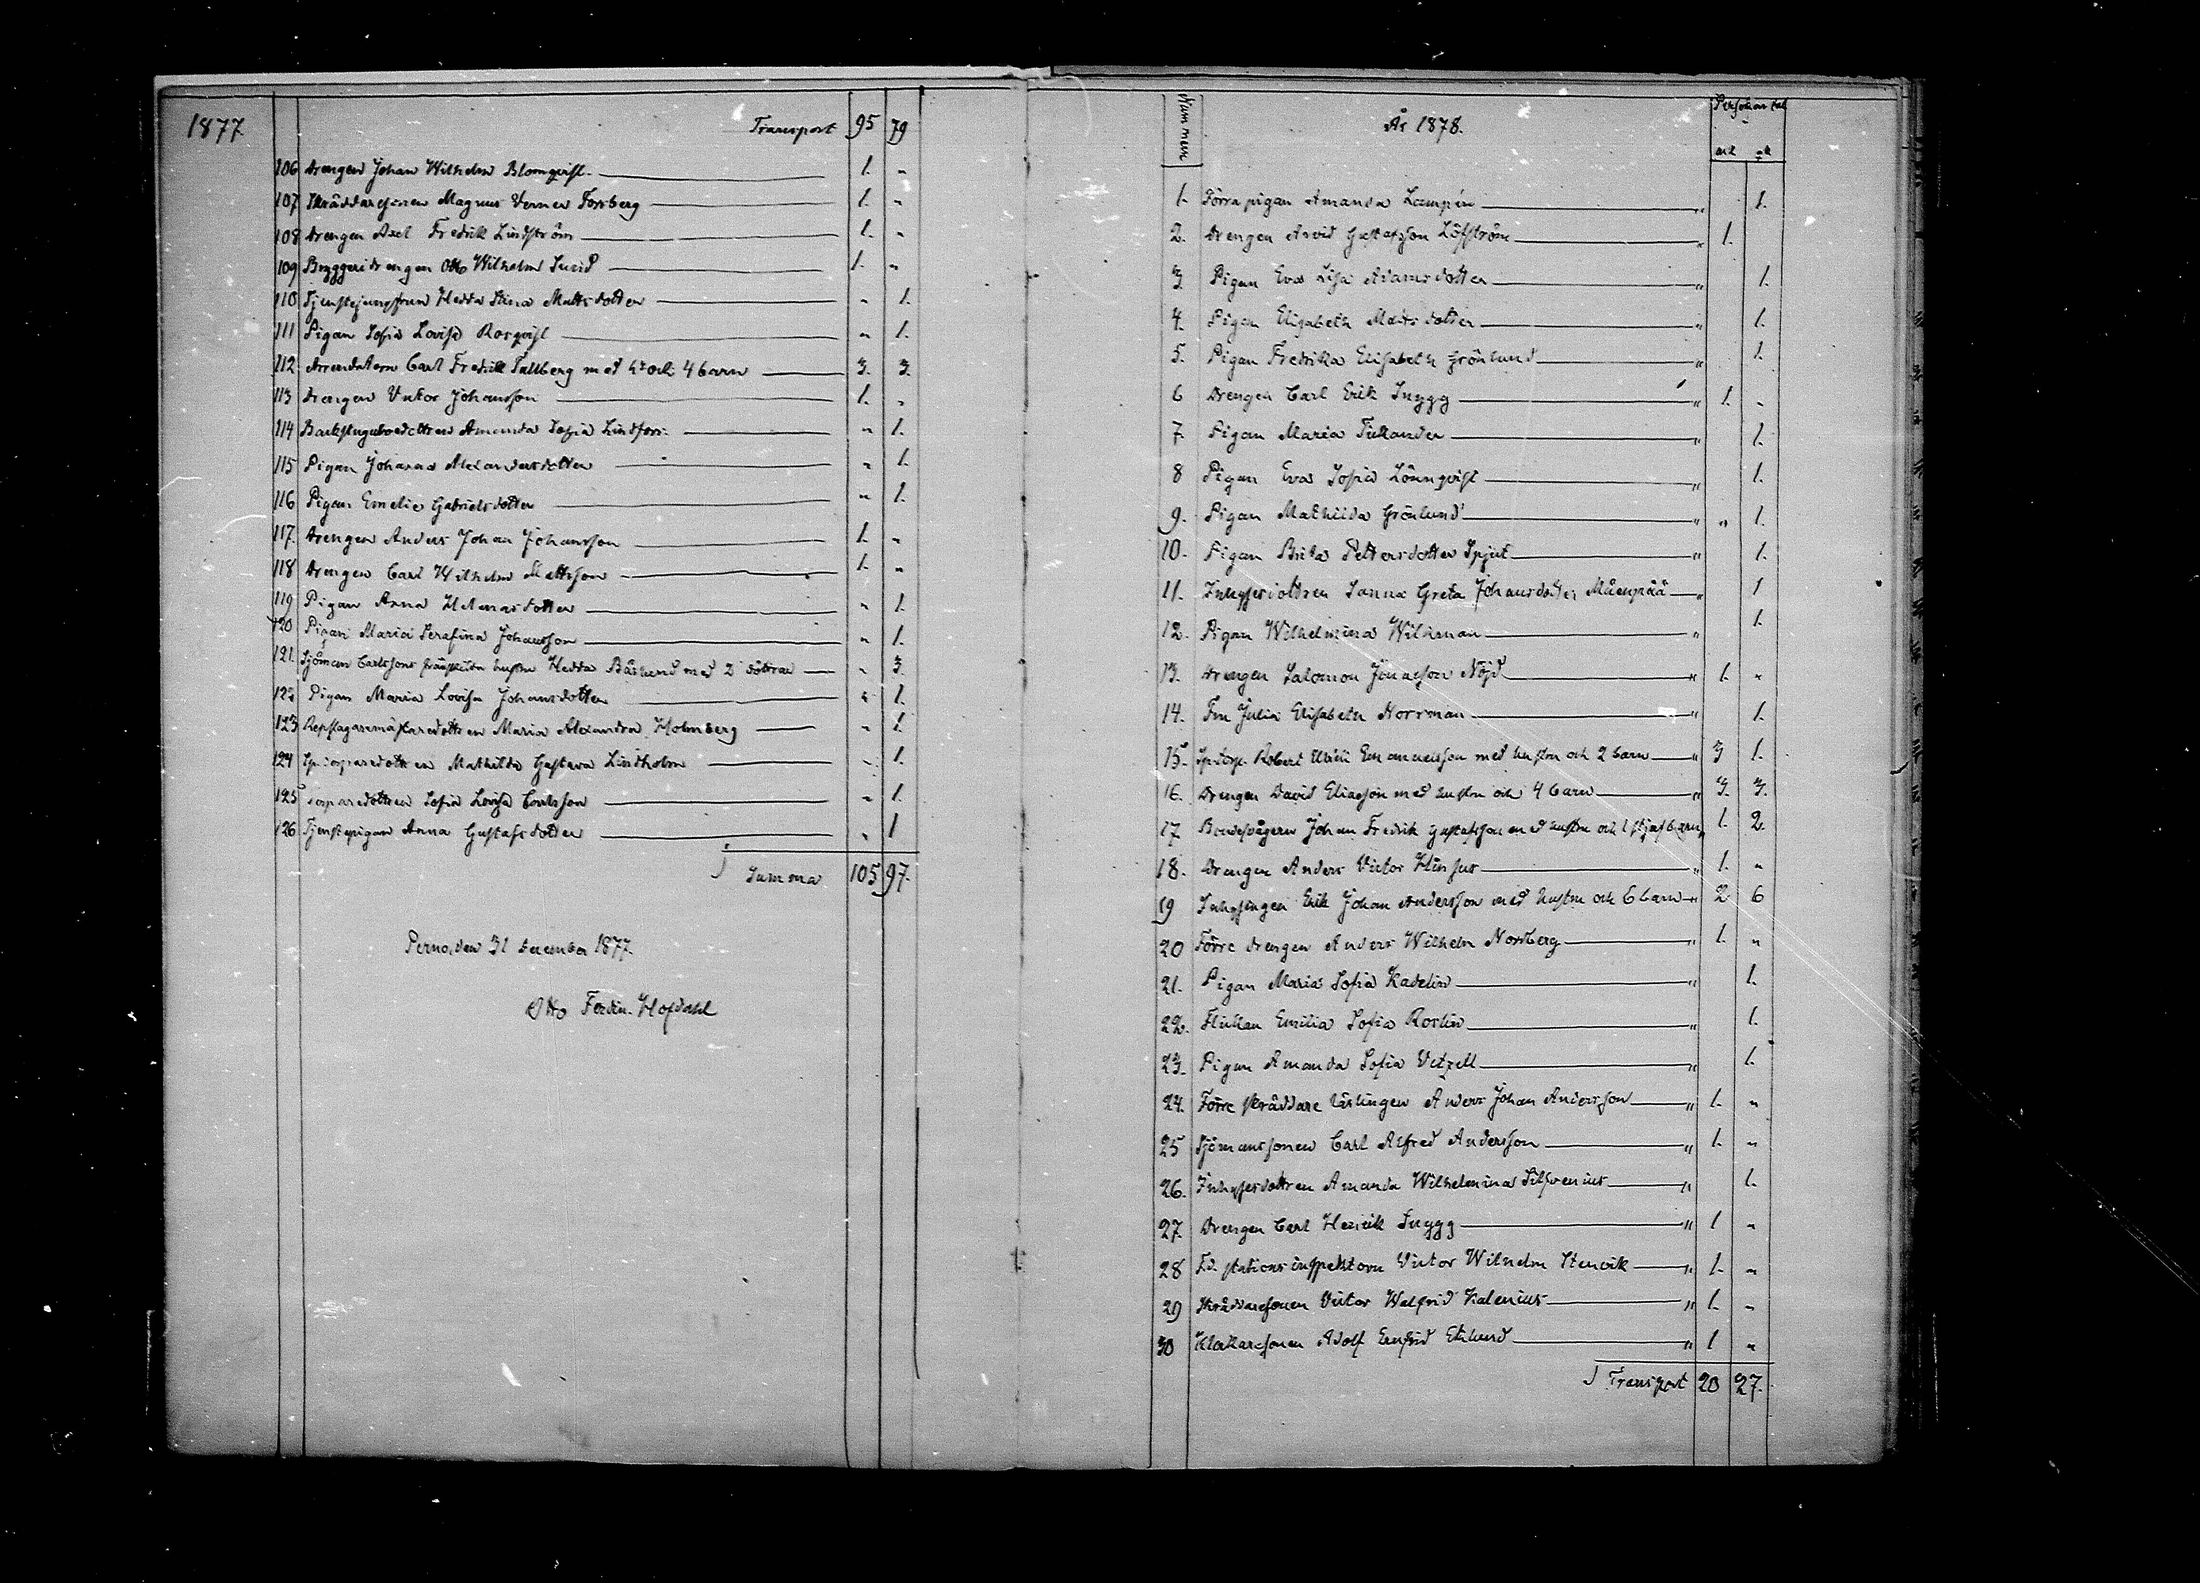 1877 Transport 95 79
106 Drengen Johan Wilhelm Blomqvist 1. "
107 Skräddaresonen Magnus Verner Forsberg 1. "
108 Drengen Axel Fredrik Lindström 1. "
109 Bryggeridrengen Otto Wilhelm Lurid 1. "
110 Tjenstejungfrun Hedda Stina Mattsdotter " 1.
111 Pigan Sofia Lovisa Rosqvist " 1.
112 Arrendatorn Carl Fredrik Tallberg med h:u och 4 barn 3. 3.
113 Drengen Victor Johansson 1. "
114 Backstugubodottren Amanda Sofia Lindfors " 1.
115 Pigan Johanna Alexandersdotter " 1.
116 Pigan Emelie Gabrielsdotter " 1.
117. Drengen Anders Johan Johansson 1. "
118 Drengen Carl Wilhelm Mattsson 1. "
119 Pigan Anna Helena dotter " 1.
120 Pigan Maria Serafina Johansson " 1.
121. Sjöman Carlssons frånskilda hustru Hedda Bäcklund med 2 döttrar " 3.
122 Pigan Maria Lovisa Johansdotter " 1.
123 Repslagaremästaredottren Maria Alexandra Holmberg " 1.
124 Sp:torparedottren Mathilda Gustava Lindholm " 1.
125 Torparedottren Sofia Lovisa Carlsson " 1.
126 Tjenstepigan Anna Gustafsdotter " 1
Summa 105 97.
Perno, den 31 December 1877.
Otto Ferdin. Hofdahl
Nummern År 1878. Personantal
mk qk
1. Förra pigan Amanda Lampén " 1.
2. Drengen Arvid Gustafsson Löfström " 1.
3. Pigan Eva Lisa Adamsdotter " 1.
4. Pigan Elisabeth Mattsdotter " 1.
5. Pigan Fredrika Elisabeth Grönlund " 1.
6 Drengen Carl Erik Snygg " 1. "
7. Pigan Maria Fickander " 1.
8 Pigan Eva Sofia Lönnqvist " 1.
9. Pigan Mathilda Grönlund " " 1.
10. Pigan Brita Pettersdotter Spjut " 1.
11. Inhysesdottren Sanna Greta Johansdotter Mäenpää " 1
12. Pigan Wilhelmina Wikman " 1.
13. Drengen Salomon Jönasson Nöjd " 1. "
14. Frn Julia Elisabeth Norrman " 1.
15. Sp:torp. Robert Ulrik Emanuelsson med hustru och 2 barn " 3 1.
16. Drengen David Eliasson med hustru och 4 barn " 3. 3.
17 Bondesvågern Johan Fredrik Gustafsson med hustru och 1 styfbarn " 1. 2.
18. Drengen Anders Victor " 1. "
19 Inhysingen Erik Johan Andersson med hustru och 6 barn " 2 6
20 Förre drengen Anders Wilhelm Nordberg " 1. "
21. Pigan Maria Sofia Kadelin " 1.
22. Flickan Emilia Sofia Roslin " 1.
23. Pigan Amanda Sofia Vetzell " 1.
24. Förre skräddare lärlingen Anders Johan Andersson " 1. "
25 Sjömanssonen Carl Alfred Andersson " 1. "
26. Inhysesdottren Amanda Wilhelmina Silfvenius " 1.
27. Drengen Carl Henrik Snygg " 1 "
28 F.d. stationsinspektorn Victor Wilhelm Stenvik " 1. "
29 Skräddaresonen Victor Walfrid Kalenius " 1. "
30 Klockaresonen Adolf Ernfrid Eklund " 1 "
Transport 20 27.